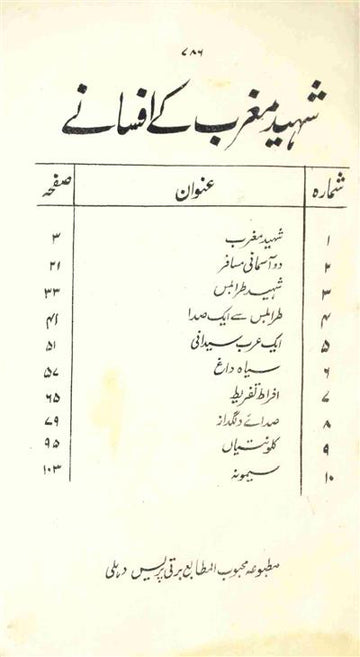 ۷۸۶
شہید مغرب کے افسانے
شمارہ عنوان صفحہ
۱ شہید مغرب ۳
۲ دو آسمانی مسافر ۲۱
۳ شہید طرابلس ۳۳
۴ طرابلس سے ایک صدا ۴۱
۵ ایک عرب سیدانی ۵۱
۶ سیاہ داغ ۵۷
۷ افراط تفریط ۶۵
۸ صدائے دلگداز ۷۹
۹ ۹۵
۱۰ سیمونہ ۱۰۳
مطبوعہ محبوب المطابع برقی پریس دہلی